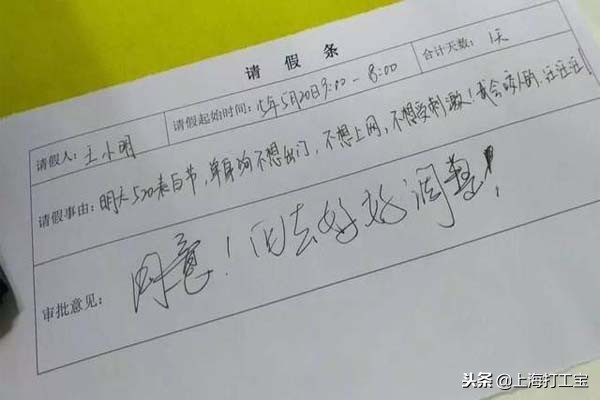 请假条
请假人：王小明
请假起始时间：15年5月20日9:00-8:00
合计天数：1天
请假事由：明天520表白节，单身狗不想出门，不想上网，不想受刺激！我会咬人的，汪汪汪！
审批意见：同意！回去好好调整！
头条 @上海打工宝